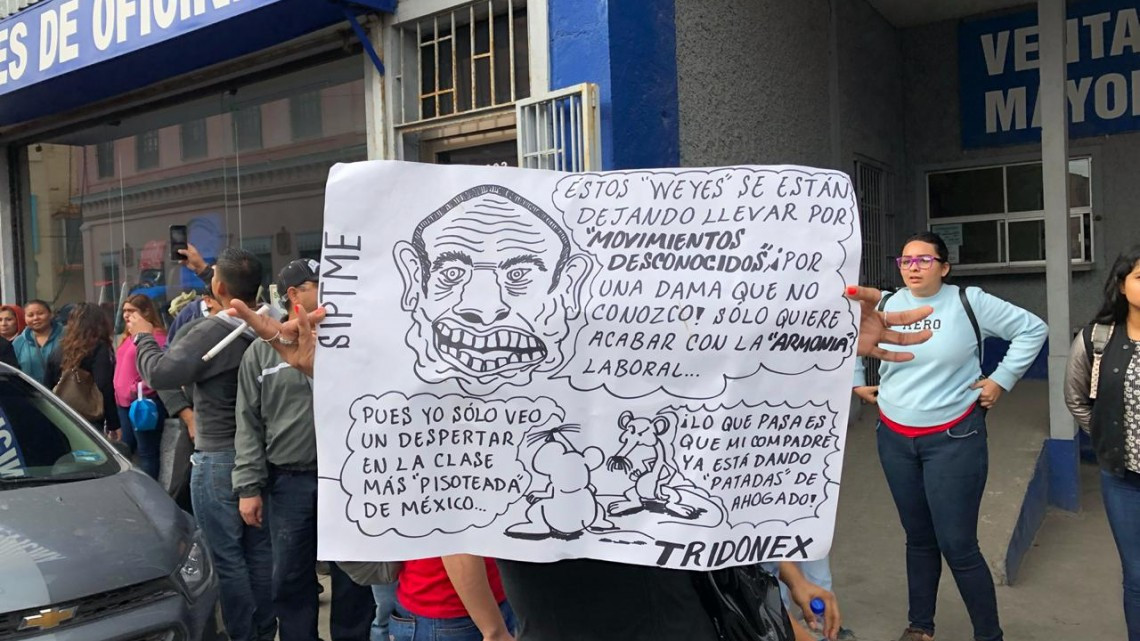 ES DE OFICIN
VENTA
MAYO
SIPTME
ESTOS "WEYES" SE ESTÁN
DEJANDO LLEVAR POR
"MOVIMIENTOS
DESCONOCIDOS", ¡POR
UNA DAMA QUE NO
CONOZCO! SÓLO QUIERE
ACABAR CON LA "ARMONIA"
LABORAL...
PUES YO SÓLO VEO
UN DESPERTAR
EN LA CLASE
MÁS "PISOTEADA"
DE MÉXICO...
¡LO QUE PASA ES
QUE MI COMPADRE
YA ESTÁ DANDO
"PATADAS" DE
AHOGADO!
TRIDONEX
AERO